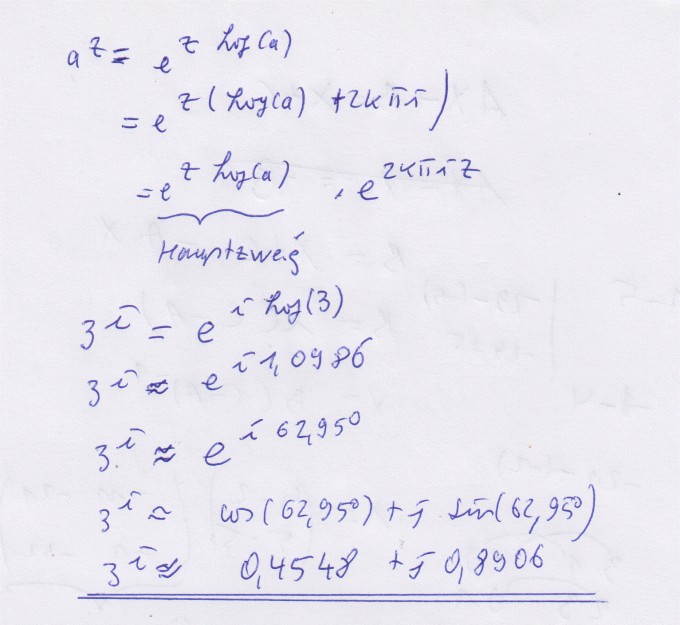 a^z = e^{z log(a)}
= e^{z (log(a) + 2kπi)}
= e^{z log(a)} · e^{2kπiz}
Hauptzweig
3^i = e^{i log(3)}
3^i ≈ e^{i 1,0986}
3^i ≈ e^{i 62,95°}
3^i ≈ cos(62,95°) + j sin(62,95°)
3^i ≈ 0,4548 + j 0,8906